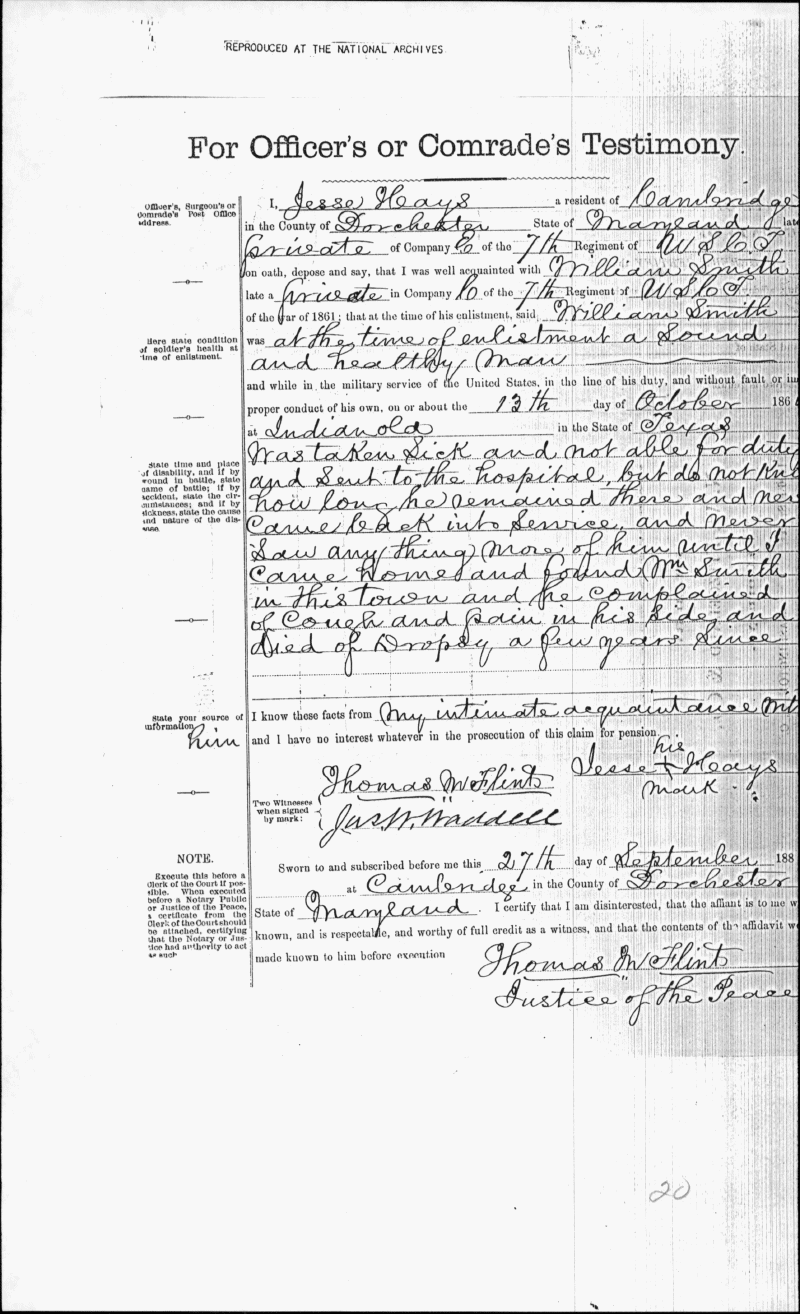 REPRODUCED AT THE NATIONAL ARCHIVES
For Officer's or Comrade's Testimony.
Officer's, Surgeon's or
Comrade's Post Office
address.
I, Jesse Hays a resident of Cambridge
in the County of Dorchester State of Maryland late
private of Company C of the 7th Regiment of U S C T
on oath, depose and say, that I was well acquainted with William Smith
late a private in Company C of the 7th Regiment of U S C T
of the war of 1861; that at the time of his enlistment, said William Smith
Here state condition
of soldier's health at
time of enlistment.
was at the time of enlistment a Sound
and healthy Man
and while in the military service of the United States, in the line of his duty, and without fault or im
proper conduct of his own, on or about the 13th day of October 186
at Indianold in the State of Texas
State time and place
of disability, and if by
wound in battle, state
name of battle; if by
accident, state the cir-
cumstances; and if by
sickness, state the cause
and nature of the dis-
ease.
Was taken Sick and not able for duty
and Sent to the hospital, but do not Kno
how long he remained there and nev
Came back into Service, and never
Saw any thing more of him until I
Came home and found Wm Smith
in this town and he complained
of Cough and pain in his Side, and
Died of Dropsy a few years Since
State your source of
information.
I know these facts from My intimate acquaintance wit
him and I have no interest whatever in the prosecution of this claim for pension.
his
Jesse + Hays
mark
Two Witnesses
when signed
by mark:
Thomas W Flint
Jas W. Waddell
NOTE.
Execute this before a
Clerk of the Court if pos-
sible. When executed
before a Notary Public
or Justice of the Peace,
a certificate from the
Clerk of the Court should
be attached, certifying
that the Notary or Jus-
tice had authority to act
as such
Sworn to and subscribed before me this 27th day of September 188
at Cambridge in the County of Dorchester
State of Maryland. I certify that I am disinterested, that the affiant is to me w
known, and is respectable, and worthy of full credit as a witness, and that the contents of the affidavit we
made known to him before execution
Thomas W Flint
Justice of the Peace
20